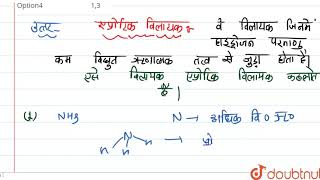 Option4 1,3
उत्तर- एप्रोटिक विलायक वे विलायक जिनमें
हाइड्रोजन परमाणु
कम विद्युत ऋणात्मक तत्व से जुड़ा होता है।
एसे विलायक एप्रोटिक विलायक कहलाते
हैं।
(1) NH3 N → अधिक वि० ऋ०
N → प्रो
H H H
doubtnut